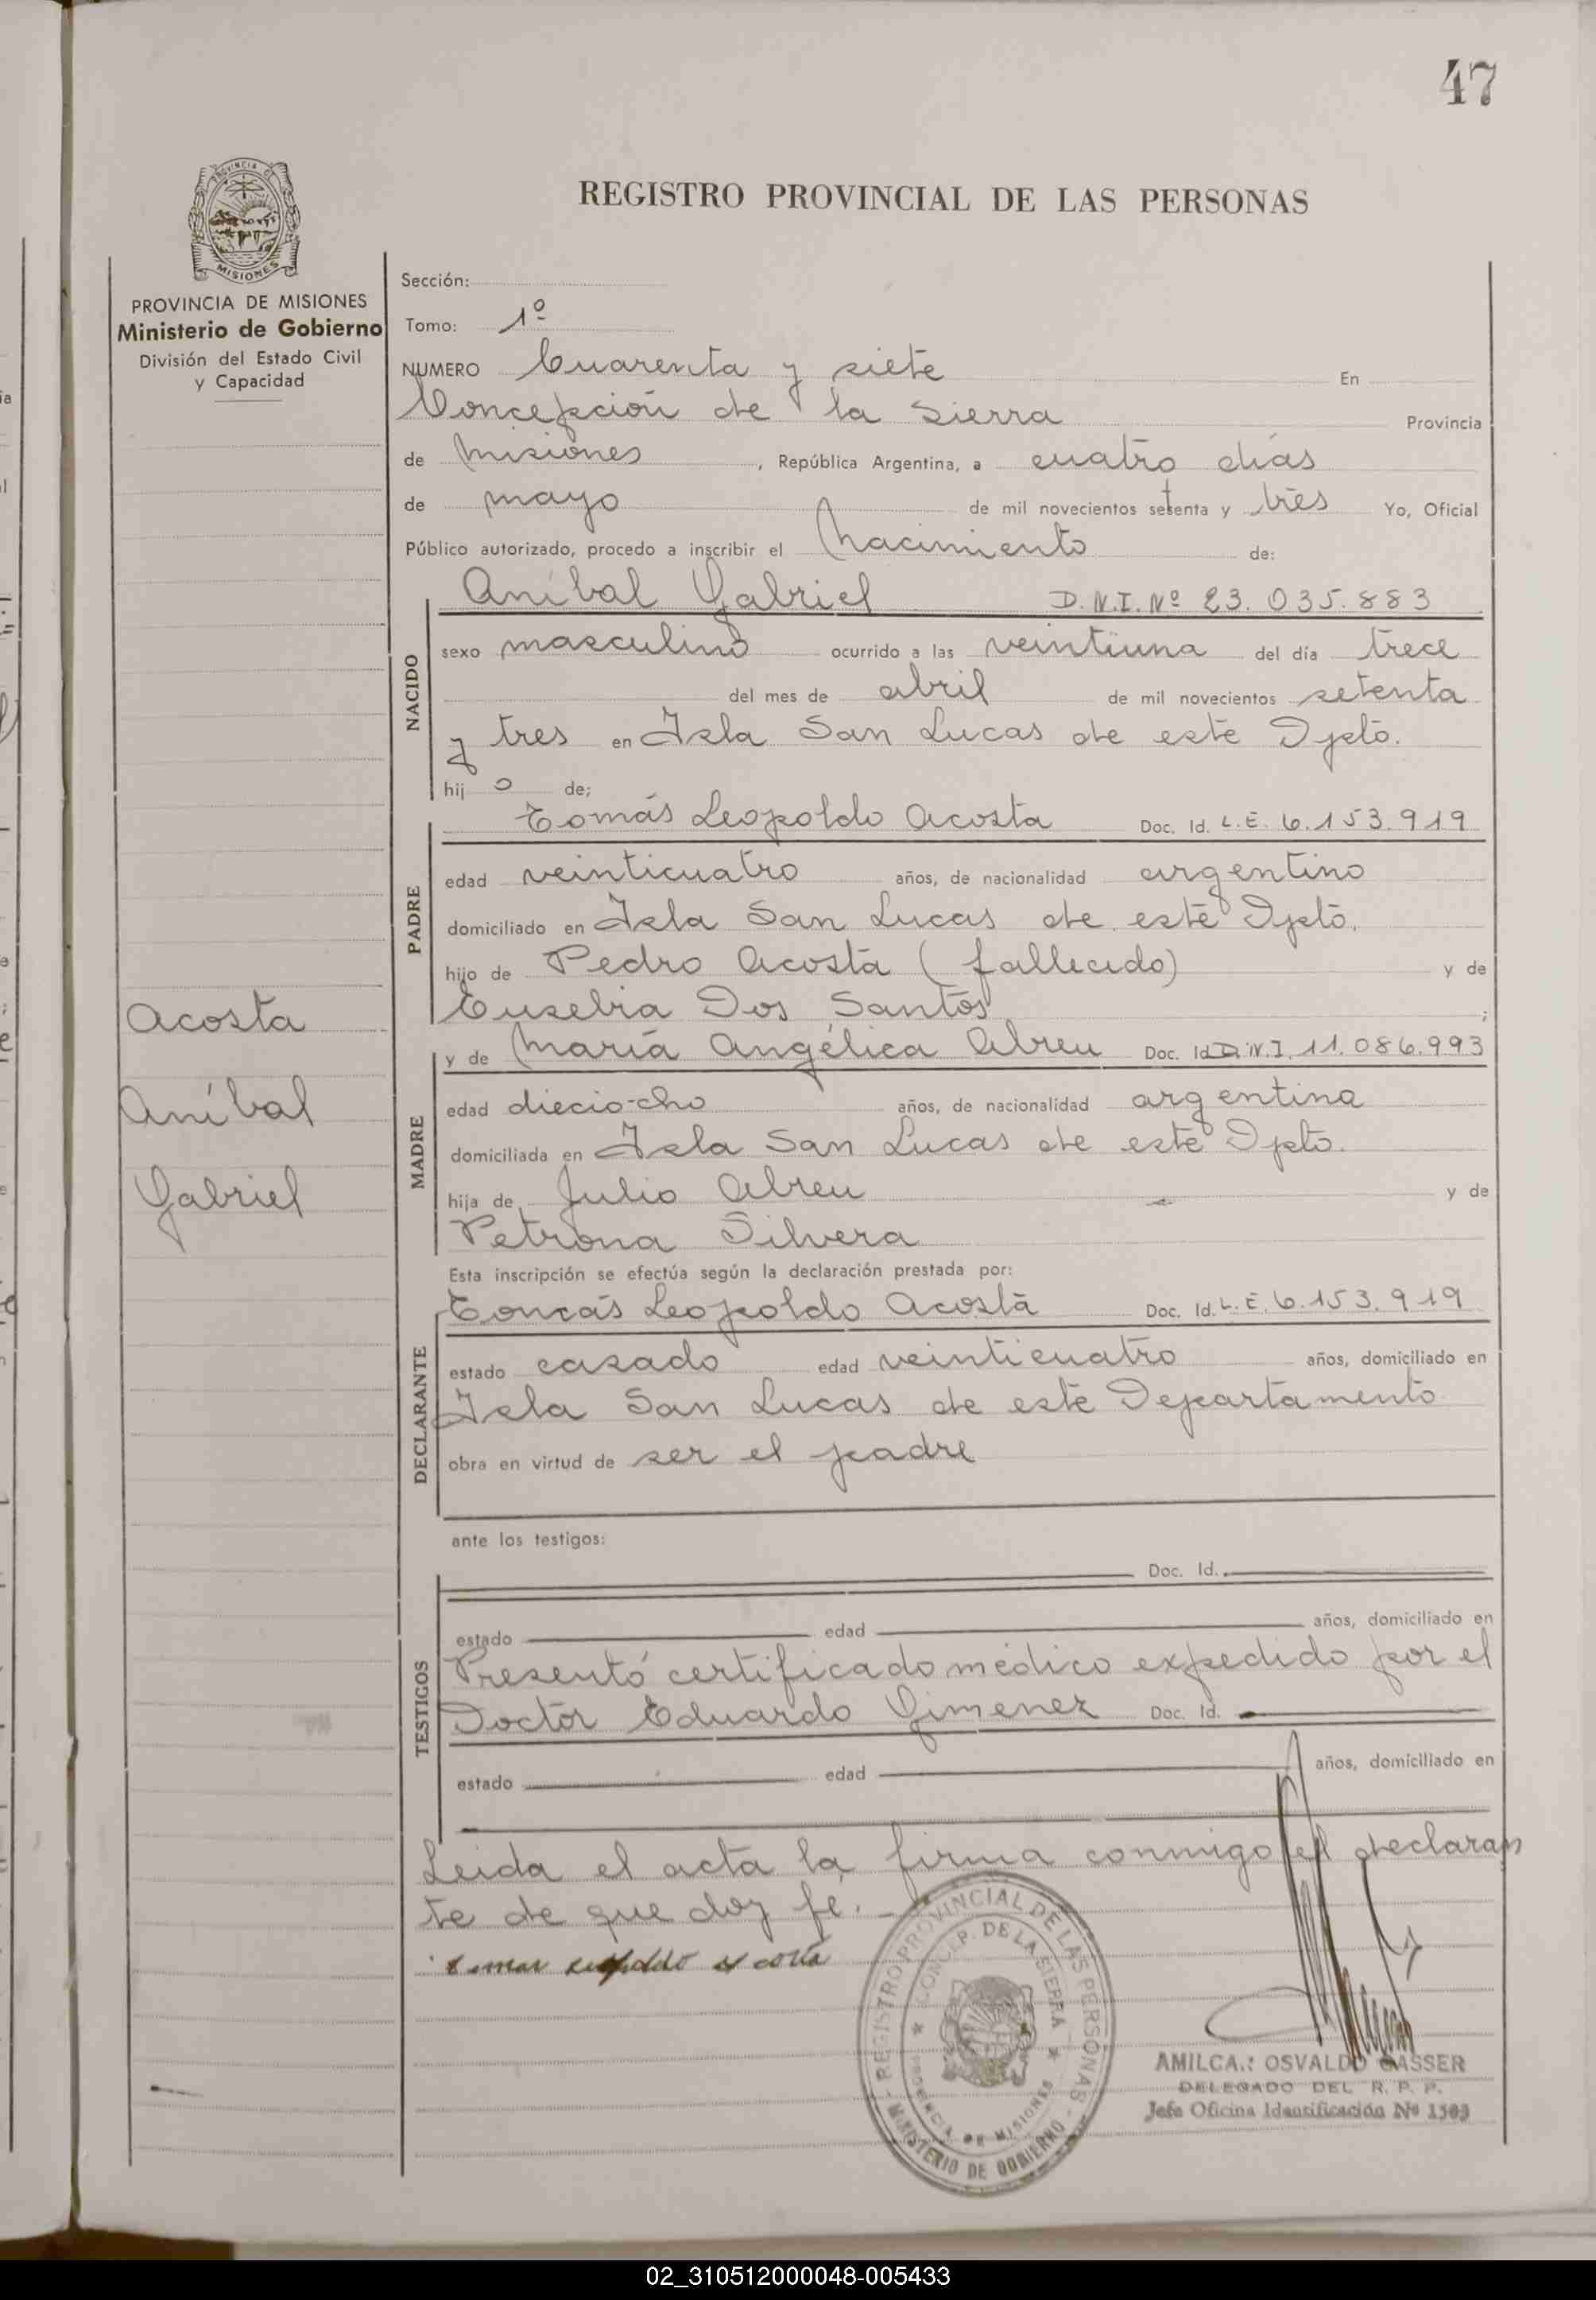 47
REGISTRO PROVINCIAL DE LAS PERSONAS
PROVINCIA DE MISIONES
Ministerio de Gobierno
División del Estado Civil
y Capacidad
Sección:
Tomo: 1º
NUMERO Cuarenta y siete En
Concepción de la Sierra Provincia
de Misiones, República Argentina, a cuatro días
de mayo de mil novecientos setenta y tres Yo, Oficial
Público autorizado, procedo a inscribir el Nacimiento de:
Aníbal Gabriel D.N.I. Nº 23.035.883
NACIDO
sexo masculino ocurrido a las veintiuna del día trece
del mes de abril de mil novecientos setenta
y tres en Isla San Lucas de este Dpto.
hijo de;
Tomás Leopoldo Acosta Doc. Id. L.E. 6.153.919
PADRE
edad veinticuatro años, de nacionalidad argentino
domiciliado en Isla San Lucas de este Dpto.
hijo de Pedro Acosta (fallecido) y de
Eusebia Dos Santos;
y de María Angélica Abreu Doc. Id. D.N.I. 11.086.993
MADRE
edad dieciocho años, de nacionalidad argentina
domiciliada en Isla San Lucas de este Dpto.
hija de Julio Abreu y de
Petrona Silvera
Esta inscripción se efectúa según la declaración prestada por:
Tomás Leopoldo Acosta Doc. Id. L.E. 6.153.919
DECLARANTE
estado casado edad veinticuatro años, domiciliado en
Isla San Lucas de este Departamento
obra en virtud de ser el padre
ante los testigos:
Doc. Id.
TESTIGOS
estado edad años, domiciliado en
Presentó certificado médico expedido por el
Doctor Eduardo Gimenez Doc. Id.
estado edad años, domiciliado en
Leida el acta la firma conmigo el declaran
te de que doy fé.
Acosta
Aníbal
Gabriel
REGISTRO PROVINCIAL DE LAS PERSONAS
CONCEP. DE LA SIERRA
PROVINCIA DE MISIONES
MINISTERIO DE GOBIERNO
AMILCAR OSVALDO GASSER
DELEGADO DEL R. P. P.
Jefe Oficina Identificación Nº 1503
02_310512000048-005433